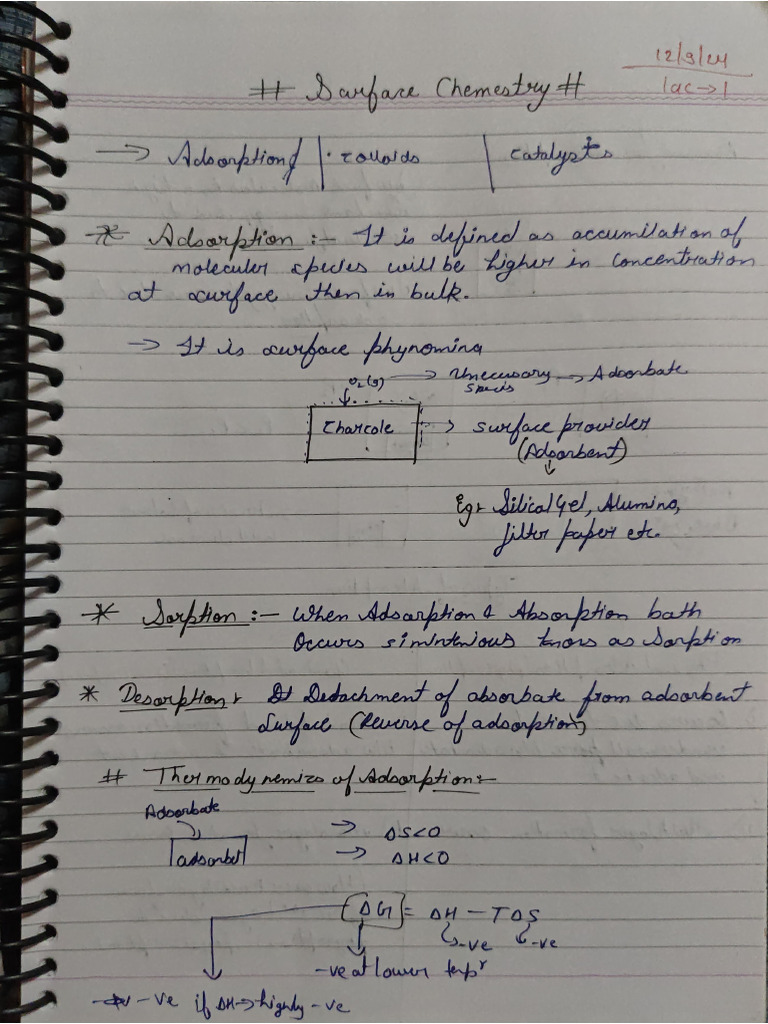 12/9/24
# Surface Chemestry #
Lac → 1
→ Adsorption | colloids | catalysts
* Adsorption :- It is defined as accumilation of
moleculer species will be higher in concentration
at surface then in bulk.
→ It is surface phynomina
O2(g) → Unecessary → Adsorbate
specis
Charcole → surface provider
(Adsorbent)
Eg:- Silical Gel, Alumina,
filter paper etc.
* Sorption :- When Adsorption & Absorption bath
Occurs simintenious as Sorption
* Desorption :- Detachment of absorbate from adsorbent
Surface (Reverse of adsorption)
# Thermodynemics of Adsorption :-
Adsorbate
→ ΔS<0
adsorbet → ΔH<0
ΔG = ΔH - TΔS
-ve -ve
-ve at lower tempr
-ve if ΔH → highly -ve